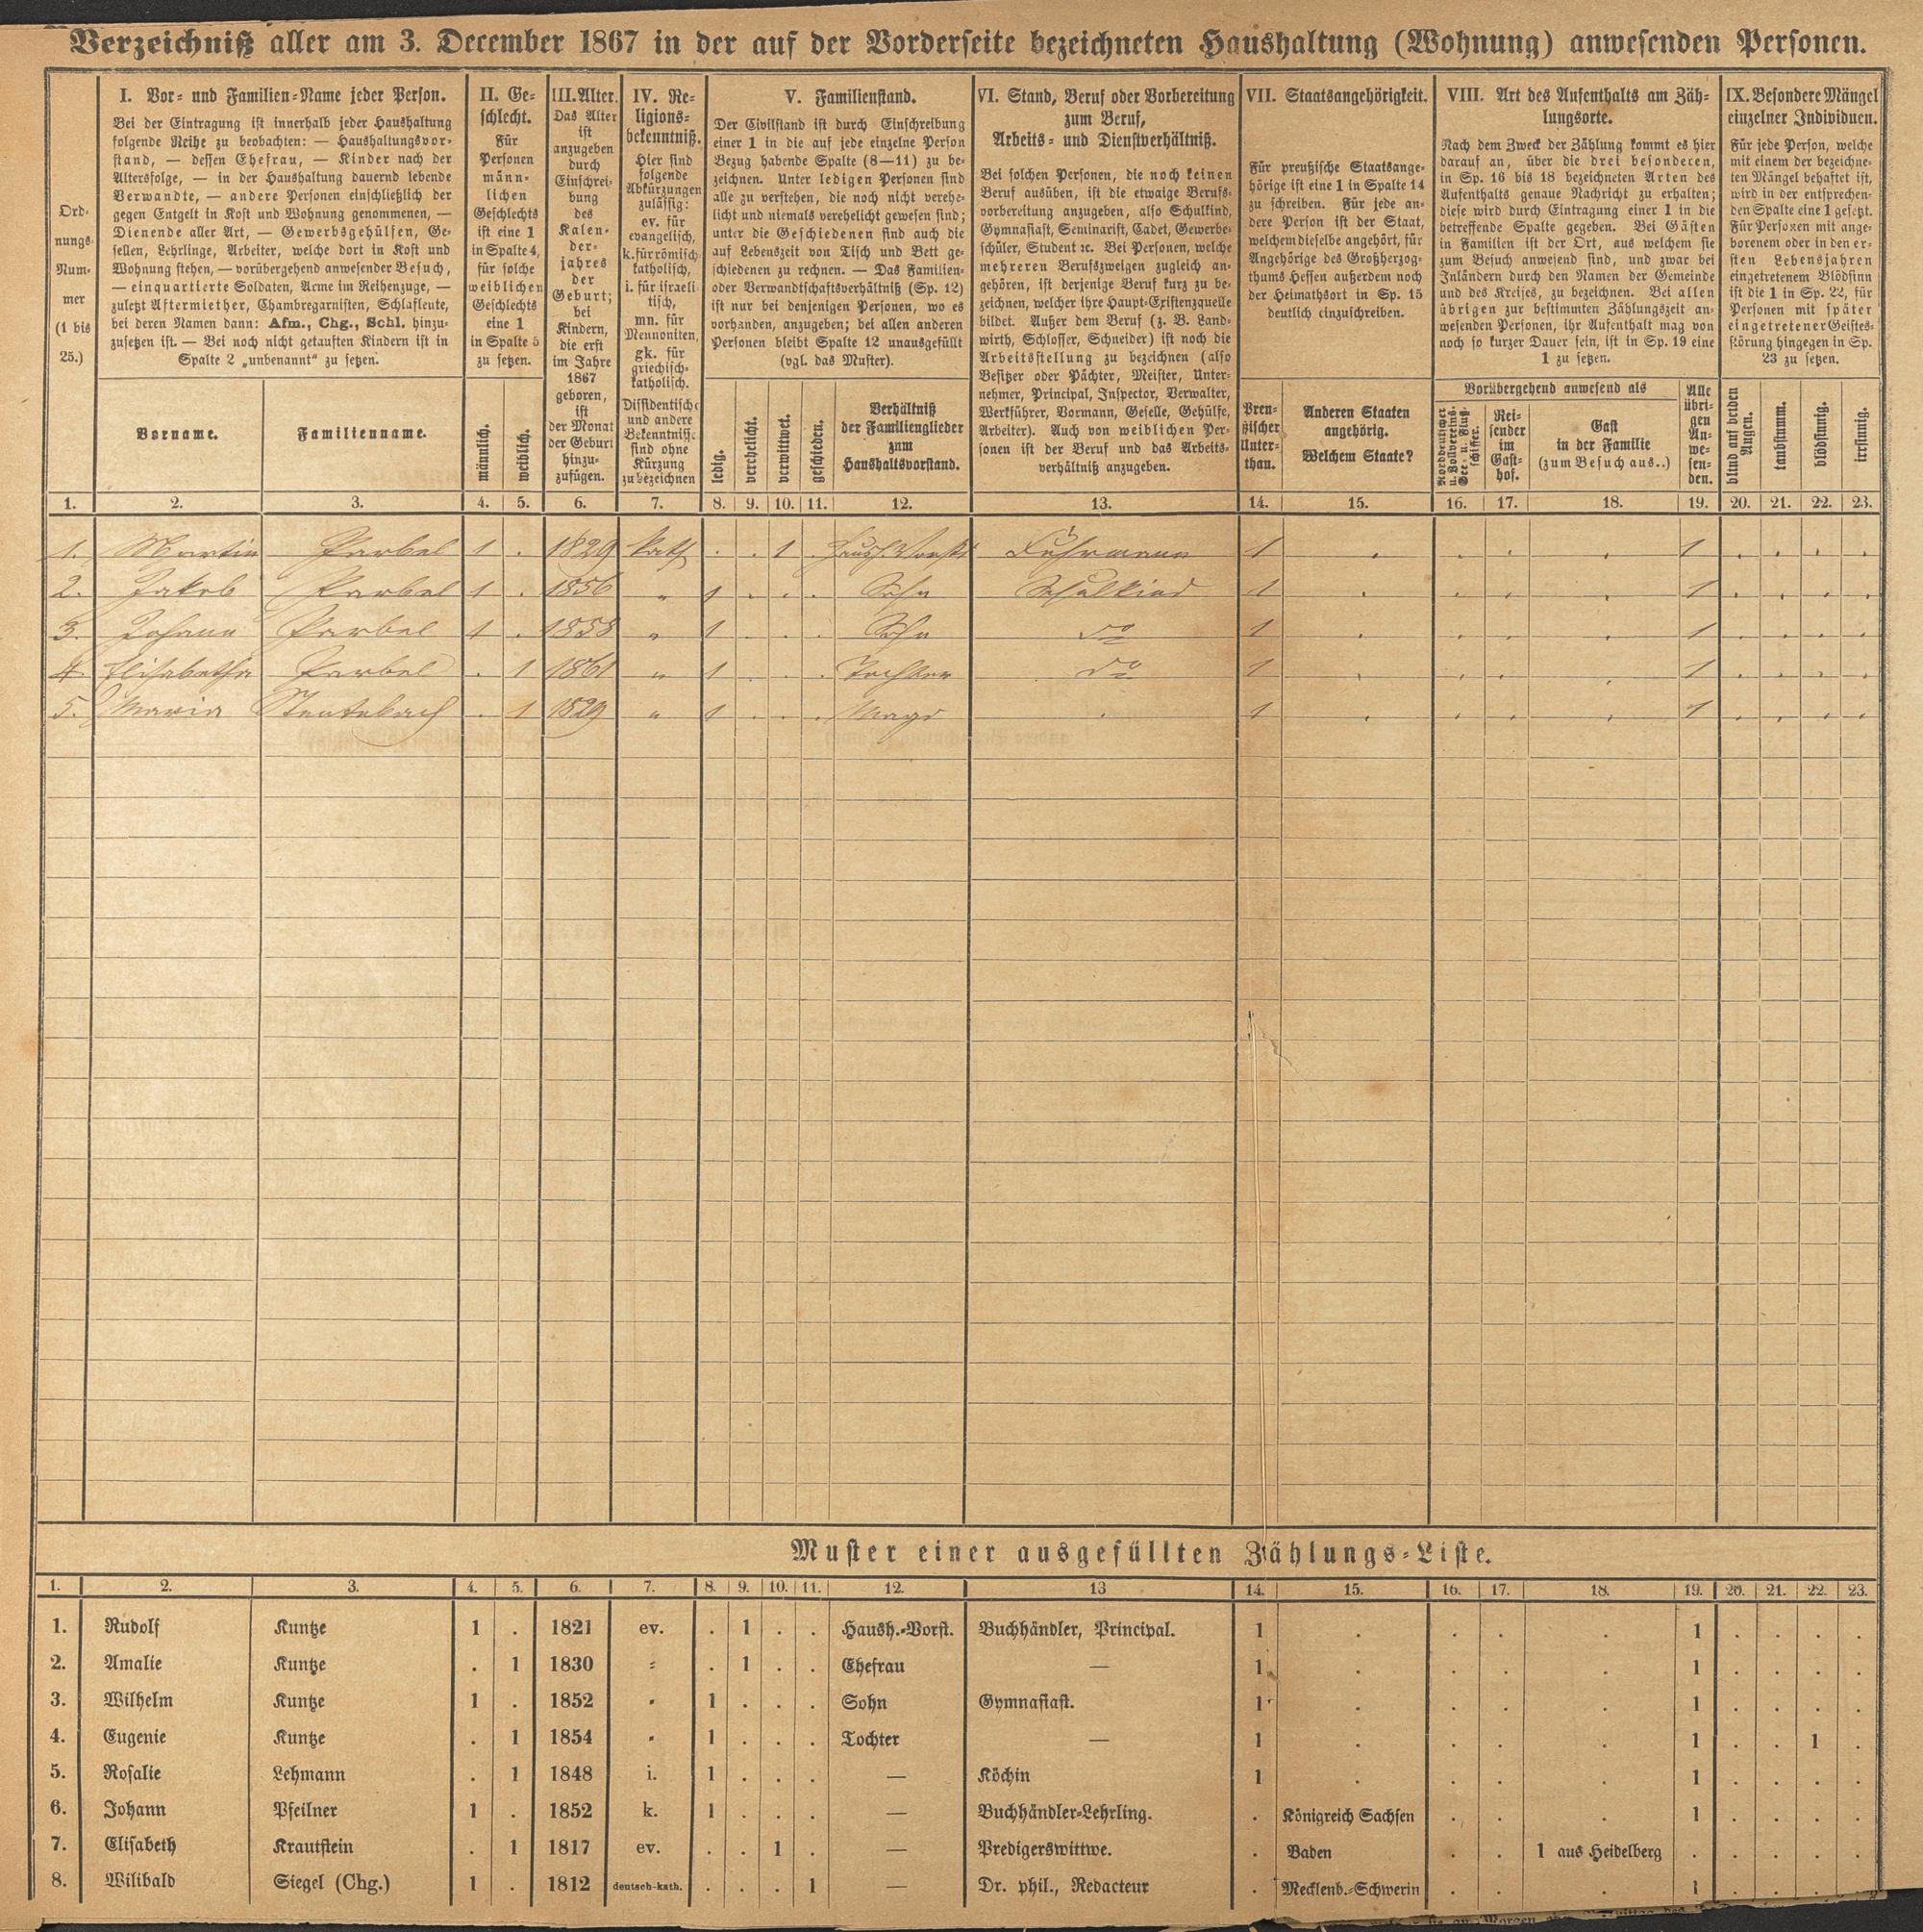 Verzeichniß aller am 3. December 1867 in der auf der Vorderseite bezeichneten Haushaltung (Wohnung) anwesenden Personen.
Ord-
nungs-
Num-
mer
(1 bis
25.)
I. Vor- und Familien-Name jeder Person.
Bei der Eintragung ist innerhalb jeder Haushaltung
folgende Reihe zu beobachten: — Haushaltungsvor-
stand, — dessen Ehefrau, — Kinder nach der
Altersfolge, — in der Haushaltung dauernd lebende
Verwandte, — andere Personen einschließlich der
gegen Entgelt in Kost und Wohnung genommenen, —
Dienende aller Art, — Gewerbsgehülfen, Ge-
sellen, Lehrlinge, Arbeiter, welche dort in Kost und
Wohnung stehen, — vorübergehend anwesender Besuch,
— einquartierte Soldaten, Arme im Reihenzuge, —
zuletzt Aftermiether, Chambregarnisten, Schlafleute,
bei deren Namen dann: Afm., Chg., Schl. hinzu-
zusetzen ist. — Bei noch nicht getauften Kindern ist in
Spalte 2 „unbenannt“ zu setzen.
Vorname.
Familienname.
II. Ge-
schlecht.
Für
Personen
männ-
lichen
Geschlechts
ist eine 1
in Spalte 4,
für solche
weiblichen
Geschlechts
eine 1
in Spalte 5
zu setzen.
männlich.
weiblich.
III. Alter.
Das Alter
ist
anzugeben
durch
Einschrei-
bung
des
Kalen-
der-
jahres
der
Geburt;
bei
Kindern,
die erst
im Jahre
1867
geboren,
ist
der Monat
der Geburt
hinzu-
zufügen.
IV. Re-
ligions-
bekenntniß.
Hier sind
folgende
Abkürzungen
zulässig:
ev. für
evangelisch,
k. für römisch-
katholisch,
i. für israeli-
tisch,
mn. für
Mennoniten,
gk. für
griechisch-
katholisch.
Dissidentische
und andere
Bekenntnisse
sind ohne
Kürzung
zu bezeichnen
V. Familienstand.
Der Civilstand ist durch Einschreibung
einer 1 in die auf jede einzelne Person
Bezug habende Spalte (8—11) zu be-
zeichnen. Unter ledigen Personen sind
alle zu verstehen, die noch nicht verehe-
licht und niemals verehelicht gewesen sind;
unter die Geschiedenen sind auch die
auf Lebenszeit von Tisch und Bett ge-
schiedenen zu rechnen. — Das Familien-
oder Verwandtschaftsverhältniß (Sp. 12)
ist nur bei denjenigen Personen, wo es
vorhanden, anzugeben; bei allen anderen
Personen bleibt Spalte 12 unausgefüllt
(vgl. das Muster).
ledig.
verehelicht.
verwittwet.
geschieden.
Verhältniß
der Familienglieder
zum
Haushaltsvorstand.
VI. Stand, Beruf oder Vorbereitung
zum Beruf,
Arbeits- und Dienstverhältniß.
Bei solchen Personen, die noch keinen
Beruf ausüben, ist die etwaige Berufs-
vorbereitung anzugeben, also Schulkind,
Gymnasiast, Seminarist, Cadet, Gewerbe-
schüler, Student ꝛc. Bei Personen, welche
mehreren Berufszweigen zugleich an-
gehören, ist derjenige Beruf kurz zu be-
zeichnen, welcher ihre Haupt-Existenzquelle
bildet. Außer dem Beruf (z. B. Land-
wirth, Schlosser, Schneider) ist noch die
Arbeitsstellung zu bezeichnen (also
Besitzer oder Pächter, Meister, Unter-
nehmer, Principal, Inspector, Verwalter,
Werkführer, Vormann, Geselle, Gehülfe,
Arbeiter). Auch von weiblichen Per-
sonen ist der Beruf und das Arbeits-
verhältniß anzugeben.
VII. Staatsangehörigkeit.
Für preußische Staatsange-
hörige ist eine 1 in Spalte 14
zu schreiben. Für jede an-
dere Person ist der Staat,
welchem dieselbe angehört, für
Angehörige des Großherzog-
thums Hessen außerdem noch
der Heimathsort in Sp. 15
deutlich einzuschreiben.
Preu-
ßischer
Unter-
than.
Anderen Staaten
angehörig.
Welchem Staate?
VIII. Art des Aufenthalts am Zäh-
lungsorte.
Nach dem Zweck der Zählung kommt es hier
darauf an, über die drei besonderen,
in Sp. 16 bis 18 bezeichneten Arten des
Aufenthalts genaue Nachricht zu erhalten;
diese wird durch Eintragung einer 1 in die
betreffende Spalte gegeben. Bei Gästen
in Familien ist der Ort, aus welchem sie
zum Besuch anwesend sind, und zwar bei
Inländern durch den Namen der Gemeinde
und des Kreises, zu bezeichnen. Bei allen
übrigen zur bestimmten Zählungszeit an-
wesenden Personen, ihr Aufenthalt mag von
noch so kurzer Dauer sein, ist in Sp. 19 eine
1 zu setzen.
Vorübergehend anwesend als
Norddeutscher
u. Zollvereins-
See- u. Fluß-
schiffer.
Rei-
sender
im
Gast-
hof.
Gast
in der Familie
(zum Besuch aus..)
Alle
übri-
gen
An-
we-
sen-
den.
IX. Besondere Mängel
einzelner Individuen.
Für jede Person, welche
mit einem der bezeichne-
ten Mängel behaftet ist,
wird in der entsprechen-
den Spalte eine 1 gesetzt.
Für Personen mit ange-
borenem oder in den er-
sten Lebensjahren
eingetretenem Blödsinn
ist die 1 in Sp. 22, für
Personen mit später
eingetretener Geistes-
störung hingegen in Sp.
23 zu setzen.
blind auf beiden
Augen.
taubstumm.
blödsinnig.
irrsinnig.
1. 2. 3. 4. 5. 6. 7. 8. 9. 10. 11. 12. 13. 14. 15. 16. 17. 18. 19. 20. 21. 22. 23.
1. Martin Parbel 1 . 1829 kath . . 1 . Haush. Vorst. Fuhrmann 1 . . . . 1 . . . .
2. Jakob Parbel 1 . 1856 " 1 . . . Sohn Schulkind 1 . . . . 1 . . . .
3. Johann Parbel 1 . 1858 " 1 . . . Sohn do 1 . . . . 1 . . . .
4. Elisabetha Parbel . 1 1861 " 1 . . . Tochter do 1 . . . . 1 . . . .
5. Maria . 1 1829 " 1 . . . Magd . 1 . . . . 1 . . . .
Muster einer ausgefüllten Zählungs-Liste.
1. 2. 3. 4. 5. 6. 7. 8. 9. 10. 11. 12. 13 14. 15. 16. 17. 18. 19. 20. 21. 22. 23.
1. Rudolf Kuntze 1 . 1821 ev. . 1 . . Haush.-Vorst. Buchhändler, Principal. 1 . . . . 1 . . . .
2. Amalie Kuntze . 1 1830 " . 1 . . Ehefrau — 1 . . . . 1 . . . .
3. Wilhelm Kuntze 1 . 1852 " 1 . . . Sohn Gymnasiast. 1 . . . . 1 . . . .
4. Eugenie Kuntze . 1 1854 " 1 . . . Tochter — 1 . . . . 1 . . 1 .
5. Rosalie Lehmann . 1 1848 i. 1 . . . — Köchin 1 . . . . 1 . . . .
6. Johann Pfeilner 1 . 1852 k. 1 . . . — Buchhändler-Lehrling. . Königreich Sachsen . . . 1 . . . .
7. Elisabeth Krautstein . 1 1817 ev. . . 1 . — Predigerswittwe. . Baden . . 1 aus Heidelberg . . . . .
8. Wilibald Siegel (Chg.) 1 . 1812 deutsch-kath. . . . 1 — Dr. phil., Redacteur . Mecklenb.-Schwerin . . . 1 . . . .